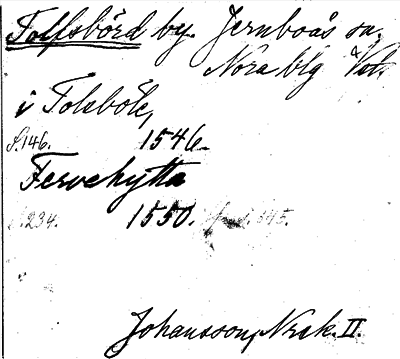 Tolfsbörd by. Jernboås sn.
Nora blg Vstl.
i Tolsböle,
s. 146. 1546.
Fervehytta
s. 234. 1550. s. 345.
Johansson, Nrsk. II.